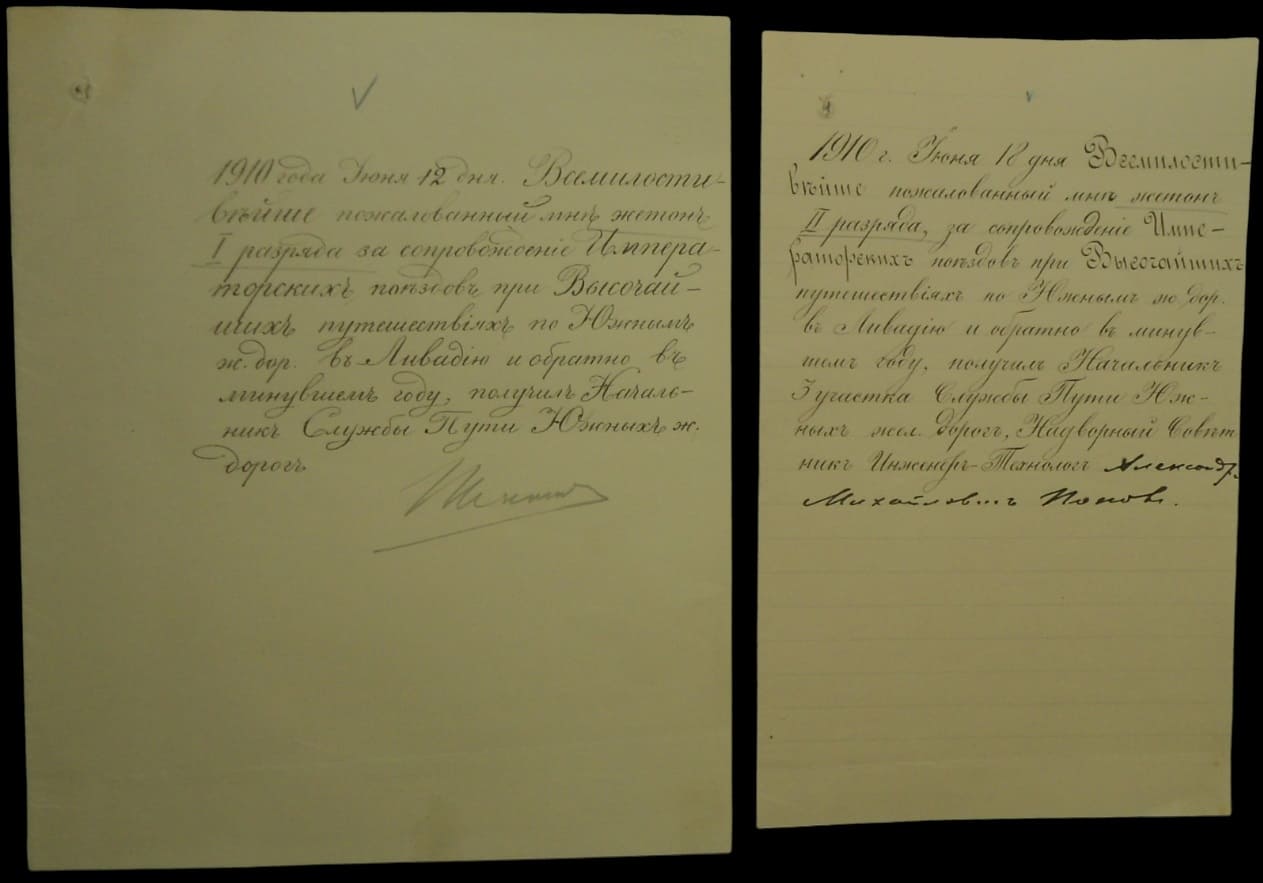 1910 года Іюня 12 дня. Всемилости-
вѣйше пожалованный мнѣ жетонъ
I разряда за сопровожденіе Импера-
торскихъ поѣздовъ при Высочай-
шихъ путешествіяхъ по Южнымъ
ж. дор. въ Ливадію и обратно въ
минувшемъ году, получилъ Началь-
никъ Службы Пути Южныхъ ж.
дорогъ
1910 г. Іюня 18 дня Всемилости-
вѣйше пожалованный мнѣ жетонъ
II разряда, за сопровожденіе Импе-
раторскихъ поѣздовъ при Высочайшихъ
путешествіяхъ по Южнымъ ж. дор.
въ Ливадію и обратно въ минув-
шемъ году, получилъ Начальникъ
3 участка Службы Пути Юж-
ныхъ жел. дорогъ, Надворный Совѣт
никъ Инженеръ-Технологъ Александръ
Михайловичъ Поповъ.